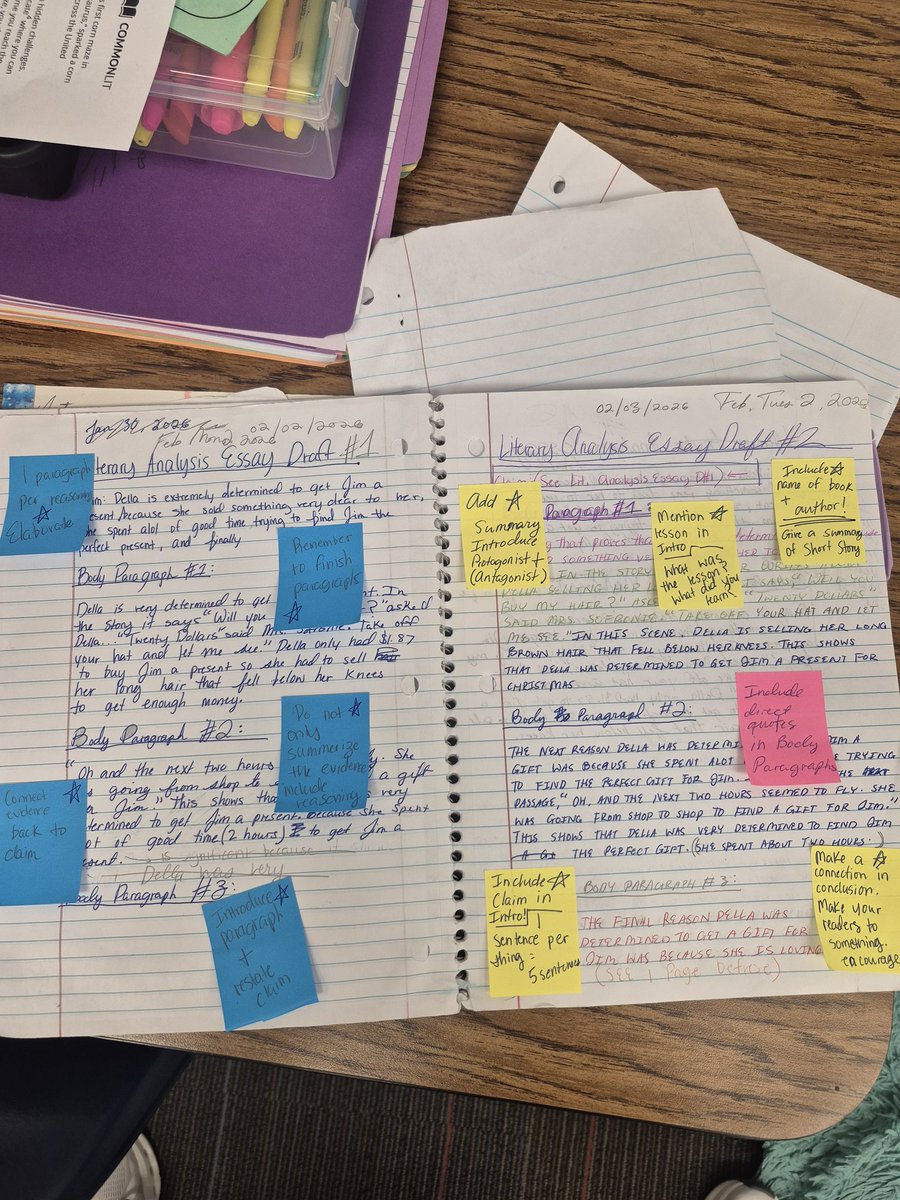 COMMONLIT
s first corn maze in
aurus," sparked a corn
cross the United
hidden challenges.
where you can
you reach the
Jan 30, 2026
Feb Mon 2 2026
02/02/2026
Literary Analysis Essay Draft #1
Della is extremely determined to get Jim a
present because she sold something very dear to her,
she spent alot of good time trying to find Jim the
perfect present, and finally
1 paragraph
per reasoning
Elaborate
Remember
to finish
paragraphs
Body Paragraph #1:
Della is very determined to get
the story it says "Will you
asked
Della... "Twenty Dollars" said Mrs. Sofronie. Take off
your hat and let me see." Della only had $1.87
to buy Jim a present so she had to sell
her long hair that fell below her knees
to get enough money.
Body Paragraph #2:
"Oh and the next two hours
She
going from shop to
a gift
Jim." This shows that
very
determined to get Jim a present. Because she spent
of good time (2 hours)
to get Jim a
is significant because it
Della was very
Do not
only
summerize
the evidence
include
reasoning
Connect
evidence
back to
claim
Body Paragraph #3:
Introduce
paragraph
+
restate
claim
02/03/2026
Feb, Tues 2, 2026
Literary Analysis Essay Draft #2
Claim (See Lit. Analysis Essay D#1) ←
Paragraph #1:
Add
Summary
Introduce
Protogonist +
(Antagonist)
Mention
lesson in
Intro
What was
the lesson?
what did you
learn?
Include
name of book
+
author!
Give a summary
of Short Story
THAT PROVES THA
SOMETHING VE
IN THE STORY
DELLA SELLING HER
SAYS "WILL YOU
BUY MY HAIR?" AS
"TWENTY DOLLARS"
SAID MRS. SOFRONIE. "TAKE OFF YOUR HAT AND LET
ME SEE." IN THIS SCENE, DELLA IS SELLING HER LONG
BROWN HAIR THAT FELL BELOW HER KNEES. THIS SHOWS
THAT DELLA WAS DETERMINED TO GET JIM A PRESENT FOR
CHRISTMAS
Body Paragraph #2:
THE NEXT REASON DELLA WAS DETERMI
JIM A
GIFT WAS BECAUSE SHE SPENT ALOT
TRYING
TO FIND THE PERFECT GIFT FOR JIM.
PASSAGE, "OH, AND THE NEXT TWO HOURS SEEMED TO FLY. SHE
WAS GOING FROM SHOP TO SHOP TO FIND A GIFT FOR JIM."
THIS SHOWS THAT DELLA WAS VERY DETERMINED TO FIND JIM
THE PERFECT GIFT. (SHE SPENT ABOUT TWO HOURS.)
Include
direct
quotes
in Body
Paragraphs
BODY PARAGRAPH #3:
THE FINAL REASON DELLA WAS
DETERMINED TO GET A GIFT FOR
JIM WAS BECAUSE SHE IS LOVING
(SEE 1 Page before)
Include
Claim in
Intro!
1
sentence per
thing =
5 sentences
Make a
connection in
conclusion.
Make your
readers to
something.
encourage